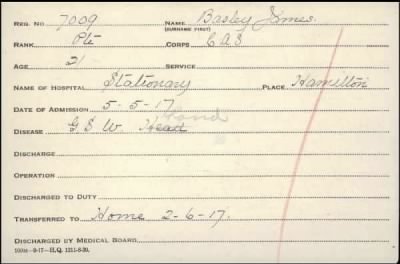 REG. NO 7009 NAME Basley James.
(SURNAME FIRST)
RANK Pte CORPS C A S
AGE 21 SERVICE
NAME OF HOSPITAL Stationary PLACE Hamilton
DATE OF ADMISSION 5-5-17
Hand
DISEASE G S W. Head
DISCHARGE
OPERATION
DISCHARGED TO DUTY
TRANSFERRED TO Home 2-6-17.
DISCHARGED BY MEDICAL BOARD